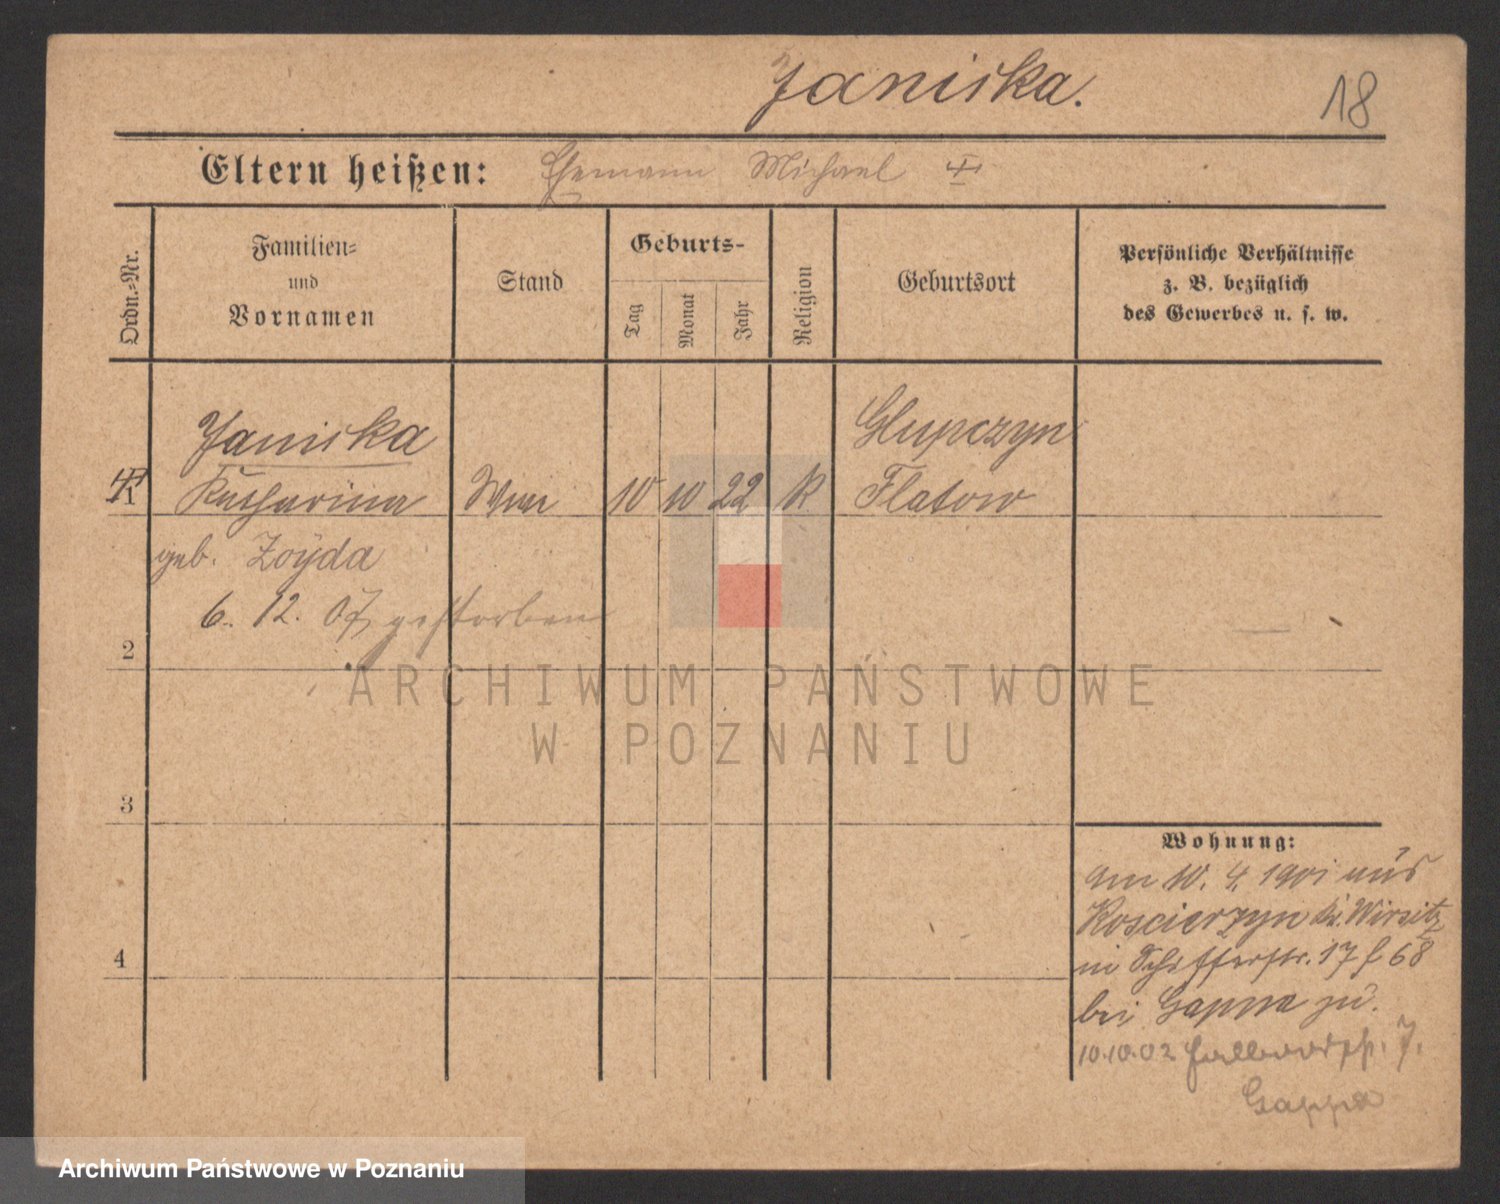 Janiska.
18
Eltern heißen: Ehemann Michael
Ordn.-Nr.
Familien-
und
Vornamen
Stand
Geburts-
Tag
Monat
Jahr
Religion
Geburtsort
Persönliche Verhältnisse
z. B. bezüglich
des Gewerbes u. s. w.
Janiska
Glupczyn
1 Katharina Wwe 10 10 22 K Flatow
geb. Zoÿda
6. 12. 07 gestorben
2
3
4
Wohnung:
am 10. 4. 1901 aus
Koscierzyn Kr. Wirsitz
in 17 68
bei Gappa zu.
10.10.02 7.
Gappa
ARCHIWUM PAŃSTWOWE
W POZNANIU
Archiwum Państwowe w Poznaniu